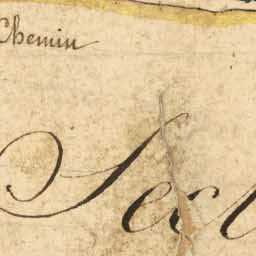 Chemin
Sect